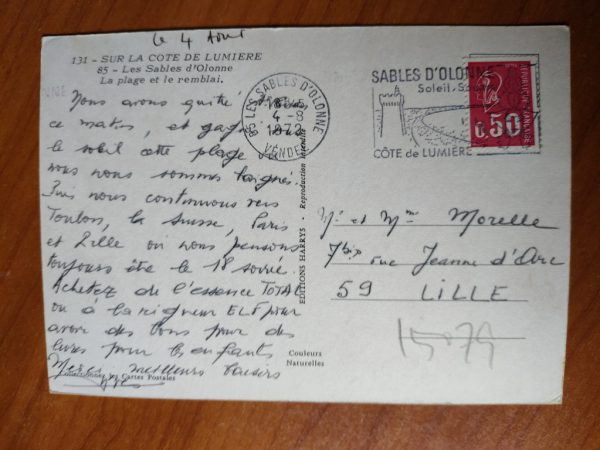 le 4 Août
131 - SUR LA COTE DE LUMIERE
85 - Les Sables d'Olonne
La plage et le remblai.
Nous avons quitté
ce matin, et
le soleil cette plage où
nous nous sommes baignés.
Puis nous continuons vers
Toulon, la Suisse, Paris
et Lille où nous pensons
toujours être le 18 soirée.
Achetez de l'essence TOTAL
ou à la rigueur ELF pour
avoir des bons pour des
livres pour les enfants
Merci, meilleurs baisers
Cartes Postales
Couleurs
Naturelles
EDITIONS HARRYS - Reproduction interdite
85 LES SABLES D'OLONNE
4-8
1972
VENDEE
SABLES D'OLONNE
Soleil
CÔTE de LUMIÈRE
REPUBLIQUE FRANCAISE
0,50
Mr et Mme Morelle
7bis rue Jeanne d'Arc
59 LILLE
15079